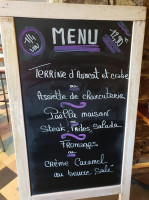 MENU
Terrine d'Avocat et crabe
ou
Assiette de charcuterie
Paella maison
ou
Steak, frites, salade
Fromages
ou
Crème Caramel
au beurre salé